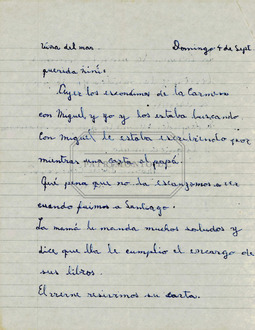 Viña del mar. Domingo 4 de Sept.
querida Niní:
Ayer los escondimos de la Carmen
con Miguel y yo y los estaba buscando.
Con Miguel le estaba escribiendo por
mientras una carta al papá.
Qué pena que no la alcanzamos a ver
cuando fuimos a Santiago.
La mamá le manda muchos saludos y
dice que ella le cumplio el encargo de
sus libros.
El viernes resivimos su carta.